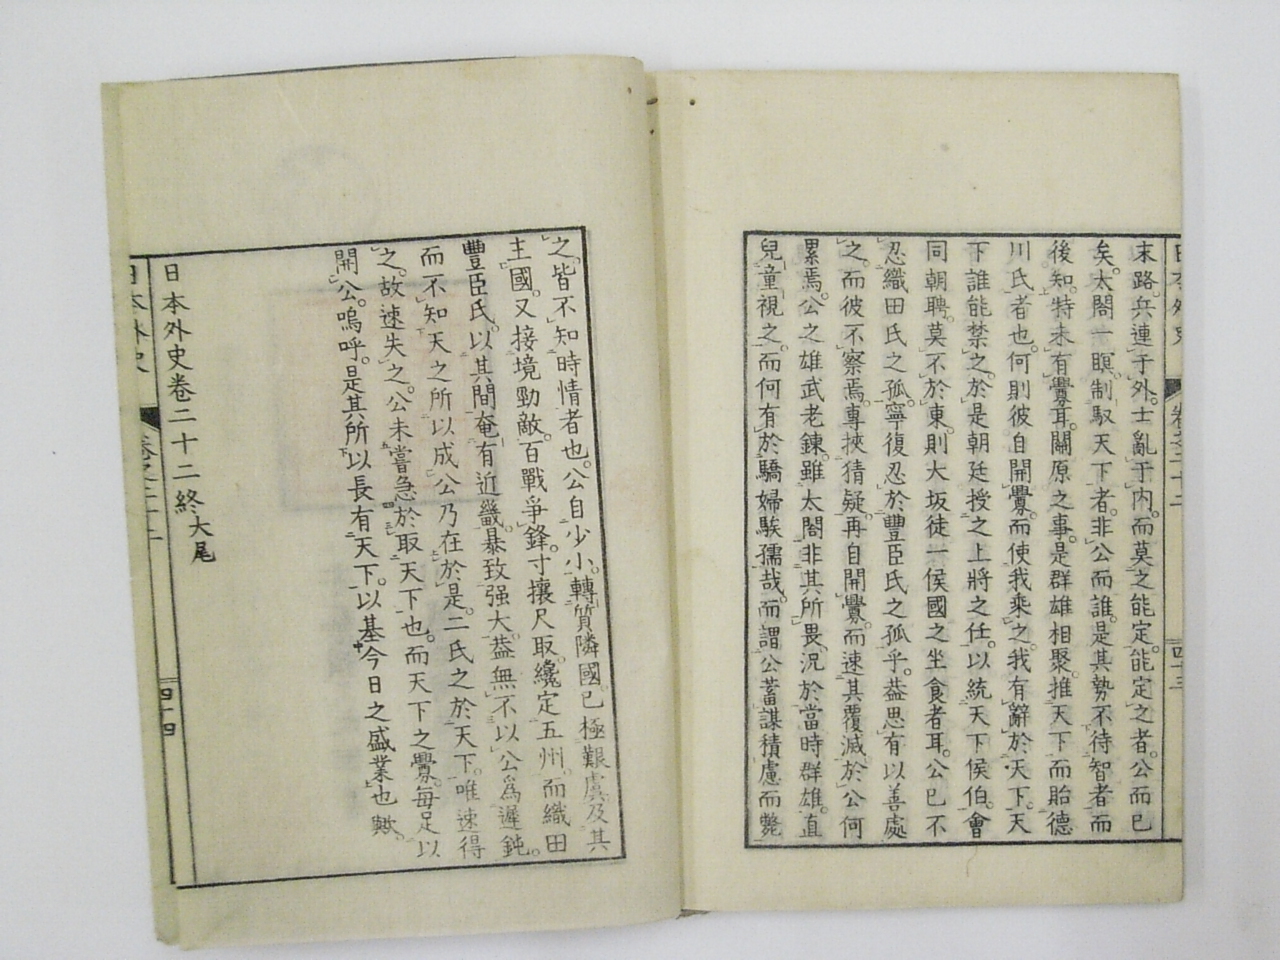 末路。兵連于外。士亂于内。而莫之能定。能定之者。公而已
矣。太閤一瞑。制馭天下者。非公而誰。是其勢不待智者而
後知。特未有釁耳。關原之事。是群雄相聚。推天下而貽德
川氏者也。何則彼自開釁。而使我乘之。我有辭於天下。天
下誰能禁之。於是朝廷授之上將之任。以統天下侯伯。會
同朝聘。莫不於東。則大坂徒一侯國之坐食者耳。公已不
忍織田氏之孤。寧復忍於豐臣氏之孤乎。葢思有以善處
之。而彼不察焉。專挾猜疑。再自開釁。而速其覆滅。於公何
累焉。公之雄武老鍊。雖太閤非其所畏。況於當時群雄。直
兒童視之。而何有於驕婦騃孺哉。而謂公蓄謀積慮而斃
之。皆不知時情者也。公自少小。轉質隣國。已極艱虞。及其
主國。又接境勁敵。百戰爭鋒。寸攘尺取。纔定五州。而織田
豐臣氏。以其間奄有近畿。暴致强大。葢無不以公爲遲鈍。
而不知天之所以成公乃在於是。二氏之於天下。唯速得
之。故速失之。公未嘗急於取天下也。而天下之釁。每足以
開公。嗚呼。是其所以長有天下。以基今日之盛業也歟。
日本外史卷二十二終大尾
日本外史
卷之二十二
四十四
日本外史
卷之二十二
四十三